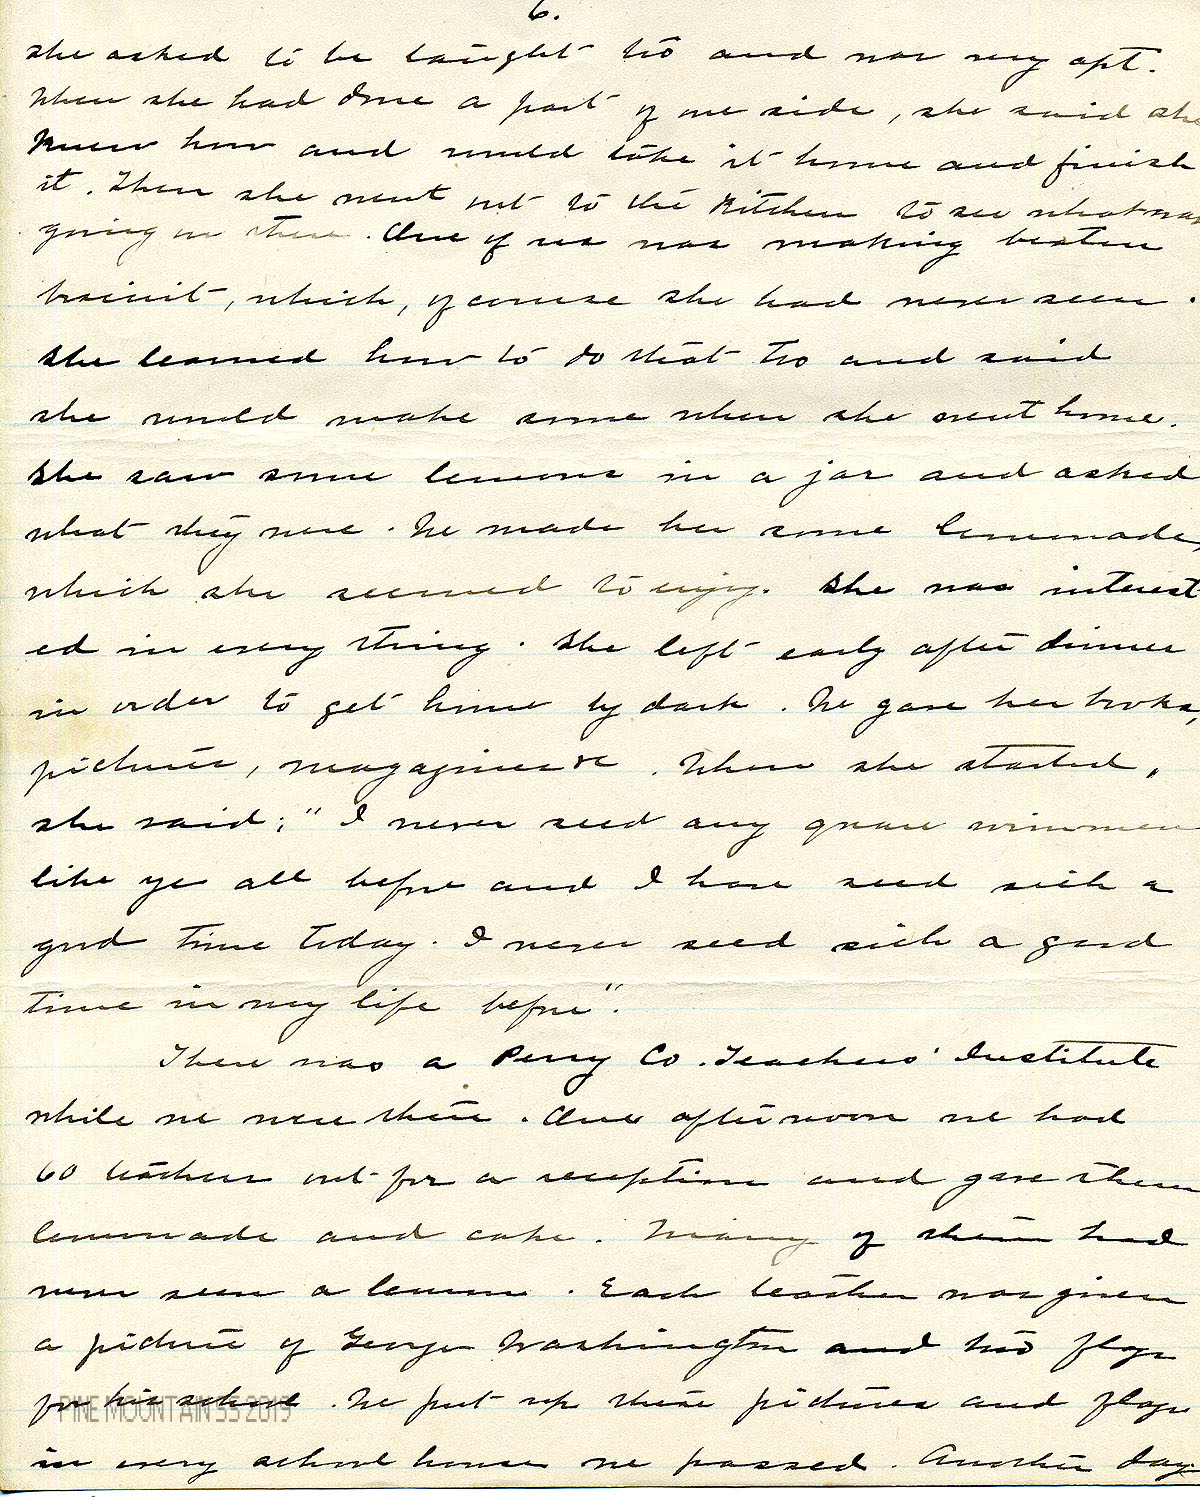 6.
she asked to be taught too and was very apt.
When she had done a part of one side, she said she
knew how and would take it home and finish
it. Then she went out to the kitchen to see what was
going on there. One of us was making beaten
biscuit, which, of course she had never seen.
She learned how to do that too and said
she would make some when she went home.
She saw some lemons in a jar and asked
what they were. We made her some lemonade,
which she seemed to enjoy. She was interest
ed in every thing. She left early after dinner
in order to get home by dark. We gave her books,
pictures, magazines &c. When she started,
she said; "I never seed any quare wimmen
like ye all before and I have seed sich a
good time today. I never seed sich a good
time in my life before".
There was a Perry Co. Teachers' Institute
while we were there. One afternoon we had
60 teachers out for a reception and gave them
lemonade and cake. Many of them had
never seen a lemon. Each teacher was given
a picture of George Washington and two flags
for his school. We put up these pictures and flags
PINE MOUNTAIN SS 2019
in every school house we passed. Another day